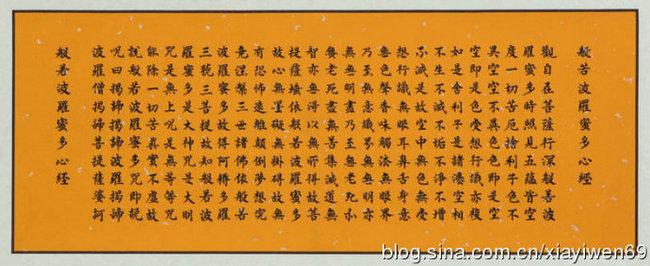 般若波羅蜜多心經
觀自在菩薩行深般若波
羅蜜多時照見五蘊皆空
度一切苦厄捨利子色不
異空空不異色色即是空
空即是色受想行識亦復
如是舍利子是諸法空相
不生不滅不垢不淨不增
不減是故空中無色無受
想行識無眼耳鼻舌身意
無色聲香味觸法無眼界
乃至無意識界無無明亦
無無明盡乃至無老死亦
無老死盡無苦集滅道無
智亦無得以無所得故菩
提薩埵依般若波羅蜜多
故心無罣礙無掛碍故無
有恐怖遠離顛倒夢想究
竟涅槃三世諸佛依般若
波羅蜜多故得阿耨多羅
三藐三菩提故知般若波
羅蜜多是大神咒是大明
咒是無上咒是無等等咒
能除一切苦真實不虛故
說般若波羅蜜多咒即說
呪曰揭諦揭諦波羅揭諦
波羅僧揭諦菩提薩婆訶
般若波羅蜜多心經
blog.sina.com.cn/xiayiwen69